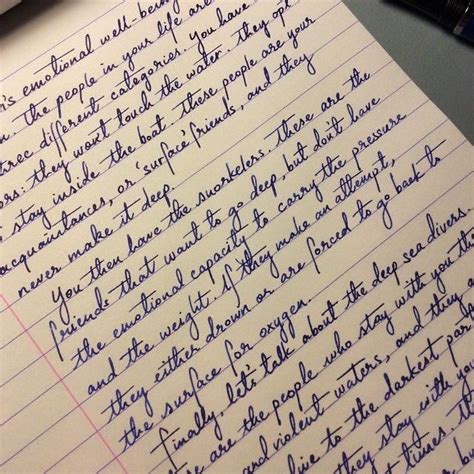 's emotional well-being
. The people in your life are
three different categories. You have
ors: they won't touch the water. They opt
stay inside the boat. These people are your
acquaintances, or 'surface' friends, and they
never make it deep.
You then have the snorkelers. These are the
friends that want to go deep, but don't have
the emotional capacity to carry the pressure
and the weight. If they make an attempt,
they either drown or are forced to go back to
the surface for oxygen.
Finally, let's talk about the deep sea divers.
are the people who stay with you th
and violent waters, and they
to the darkest par
they stay with you
times.